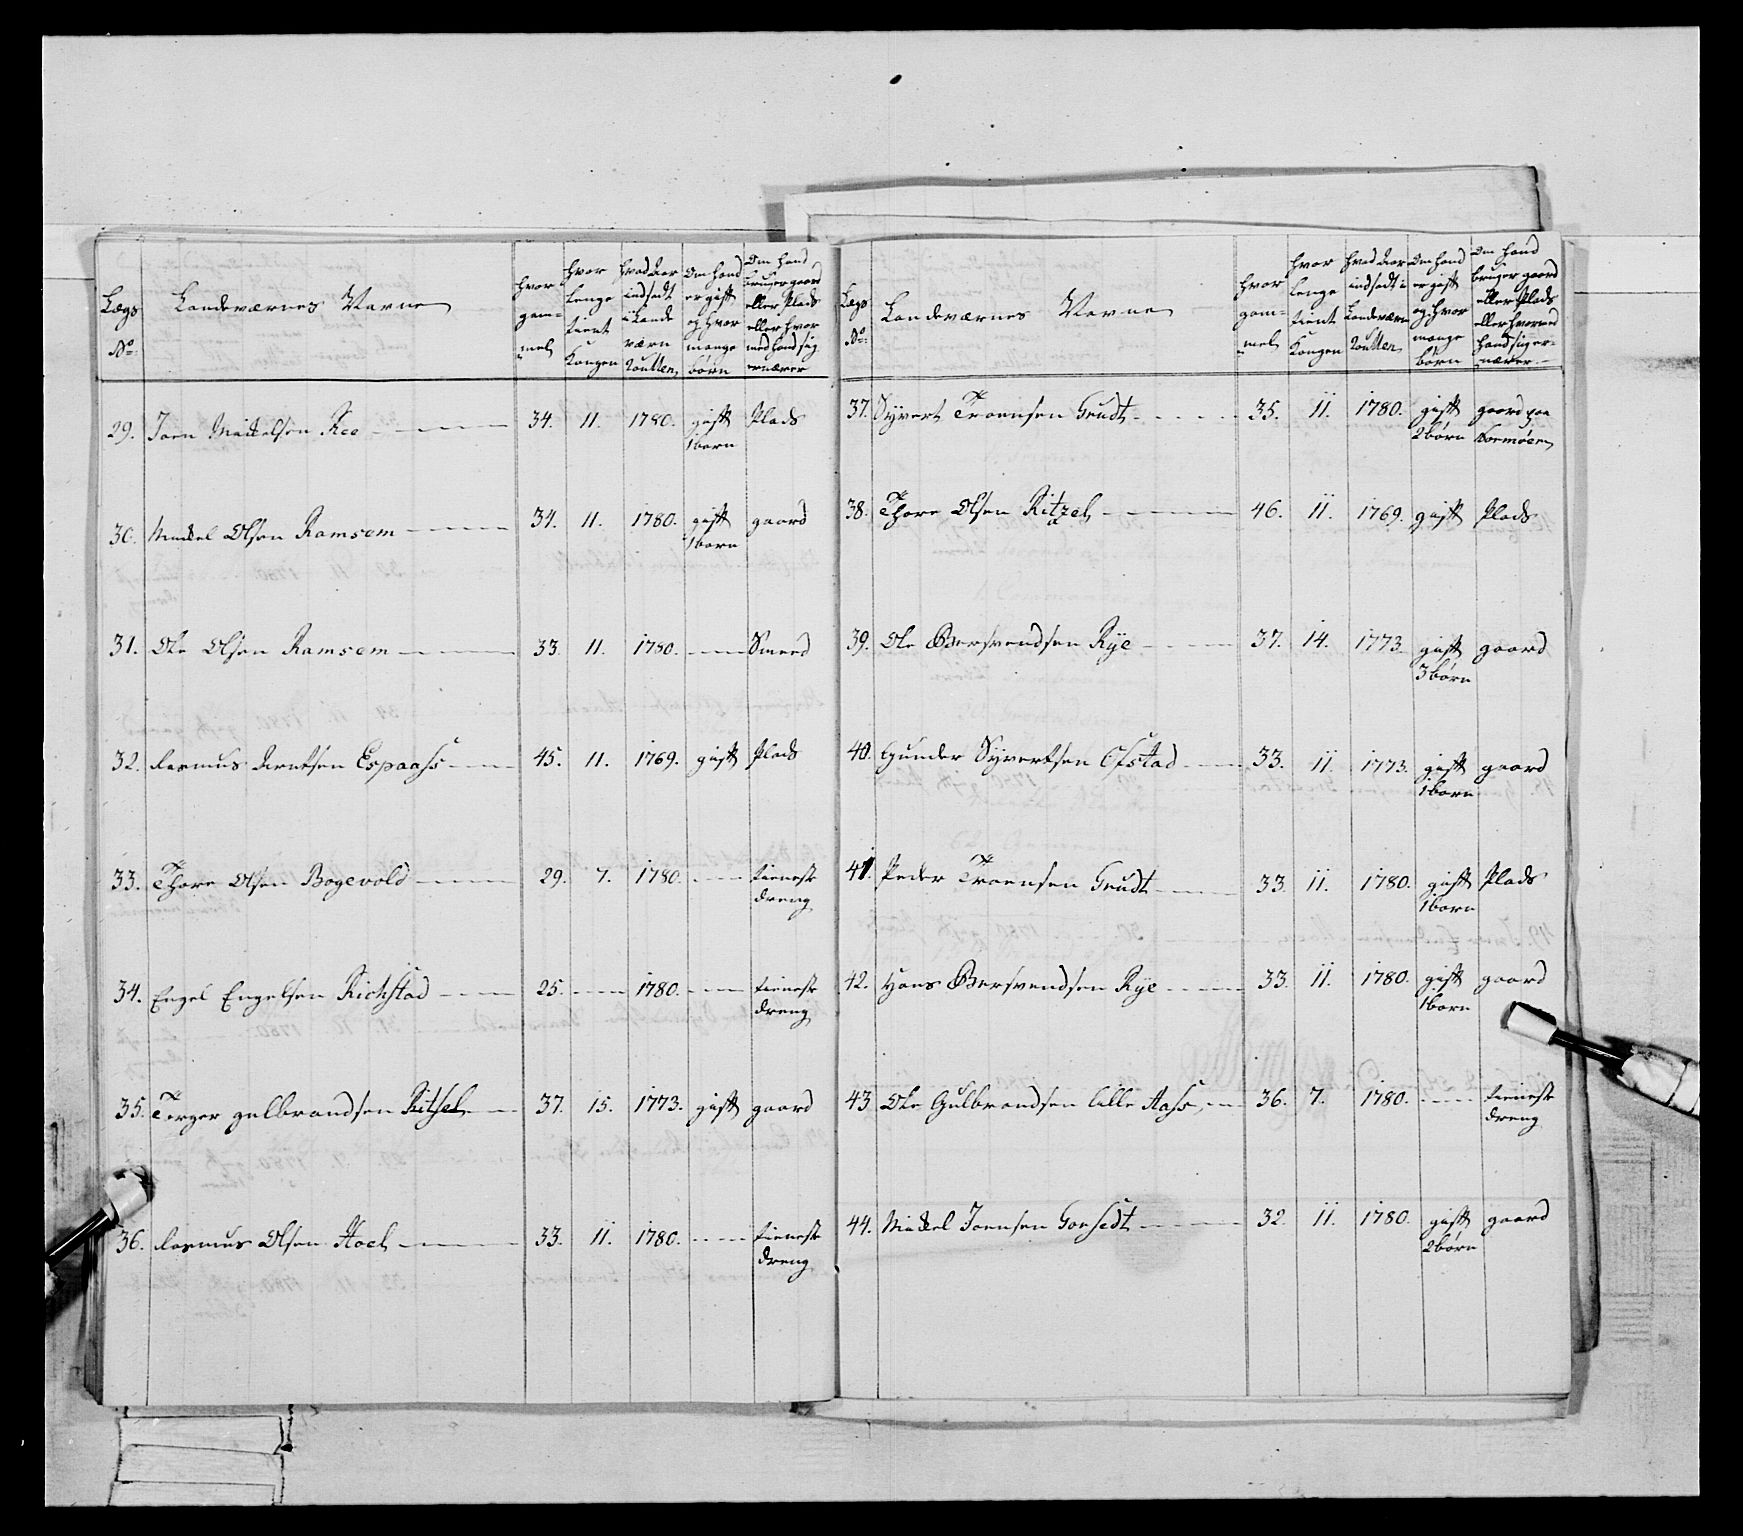 Lægs
No:
Landeværnes Navne
hvor
gam-
mel
hvor
lenge
tient
Kongen
hvad Aar
indsadt
i Lande
værn
Roullen
Om hand
er gift
og hvor
mange
børn
Om hand
bruger gaard
eller Plads
eller hvor
med hand sig
ernærer
29. Joen Mickelsen Ree 34. 11. 1780. gift Plads
1 barn
30. Mickel Olsen Ramsem 34. 11. 1780. gift gaard
1 barn
31. Ole Olsen Ramsem 33. 11. 1780. Smed
32. Rasmus Arntsen Espaass 45. 11. 1769. gift Plads
33. Thore Olsen Bogevold 29. 7. 1780. tieneste
dreng
34. Engel Engelsen Richstad 25. 1780. tieneste
dreng
35. Torger gulbrandsen Ritsel 37. 15. 1773. gift gaard
36. Rasmus Olsen Hoel 33. 11. 1780. tieneste
dreng
Lægs
No:
Landeværnes Navne
hvor
gam-
mel
hvor
lenge
tient
Kongen
hvad Aar
indsadt i
Landeværn
Roullen
Om hand
er gift
og hvor
mange
børn
Om hand
bruger gaard
eller Plads
eller hvormed
hand sig er-
nærer
37. Syvert Troensen Grudt 35. 11. 1780. gift gaard paa
2 børn Normøer
38. Thore Olsen Ritzel 46. 11. 1769. gift Plads
39. Ole Bersvendsen Rye 37. 14. 1773. gift gaard
3 børn
40. Gunder Syvertsen Ofstad 33. 11. 1773. gift gaard
1 barn
41. Peder Troensen Grudt 33. 11. 1780. gift Plads
1 barn
42. Hans Bersvendsen Rye 33. 11. 1780. gift gaard
1 barn
43. Ole Gulbrandsen lille Aass 36. 7. 1780. tieneste
dreng
44. Mickel Joensen Gorsedt 32. 11. 1780. gift gaard
2 børn